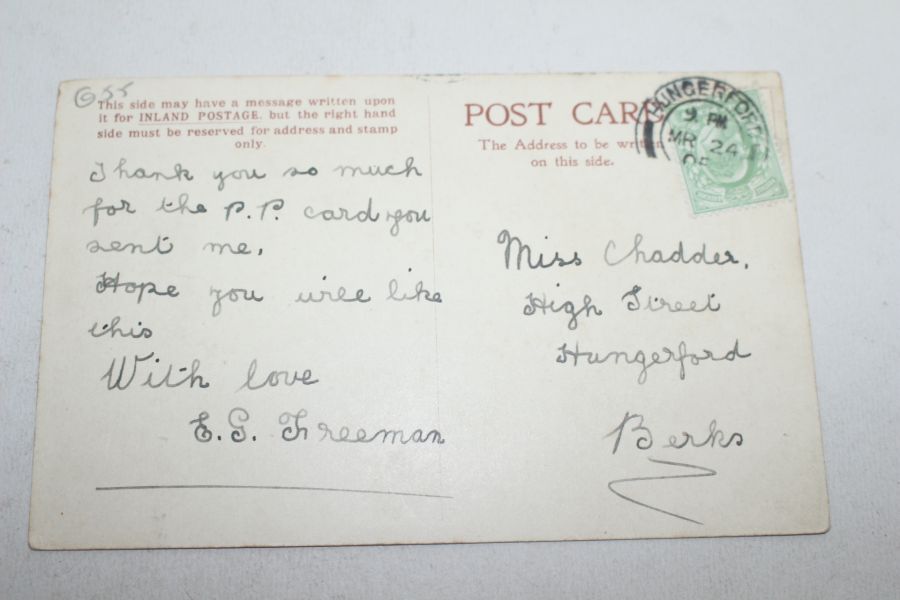 G55
This side may have a message written upon
it for INLAND POSTAGE, but the right hand
side must be reserved for address and stamp
only.
Thank you so much
for the P.P. card you
sent me.
Hope you will like
this
With love
E.G. Freeman
POST CARD
The Address to be written
on this side.
HUNGERFORD
9 PM
MR 24
Miss Chadder,
High Street
Hungerford
Berks